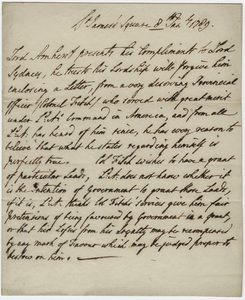 St James's Square 8th Jany 1789.
Lord Amherst presents his Compliments to Lord
Sydney, he trusts his Lordship will forgive him
enclosing a Letter, from a very deserving Provincial
Officer (Colonel Fitch) who served with great merit
under Ld A's Command in America, and from all
Ld A. has heard of him since, he has every reason to
believe that what he states regarding himself is
perfectly true. Col Fitch wishes to have a grant
of particular Lands, Ld A. does not know whether it
is the Intention of Government to grant those Lands,
if it is, Ld A. thinks Col Fitch's Services give him fair
pretensions of being favoured by Government in a grant,
or that his Losses from his Loyalty may be recompensed
by any mark of Favour which may be judged proper to
bestow on him.